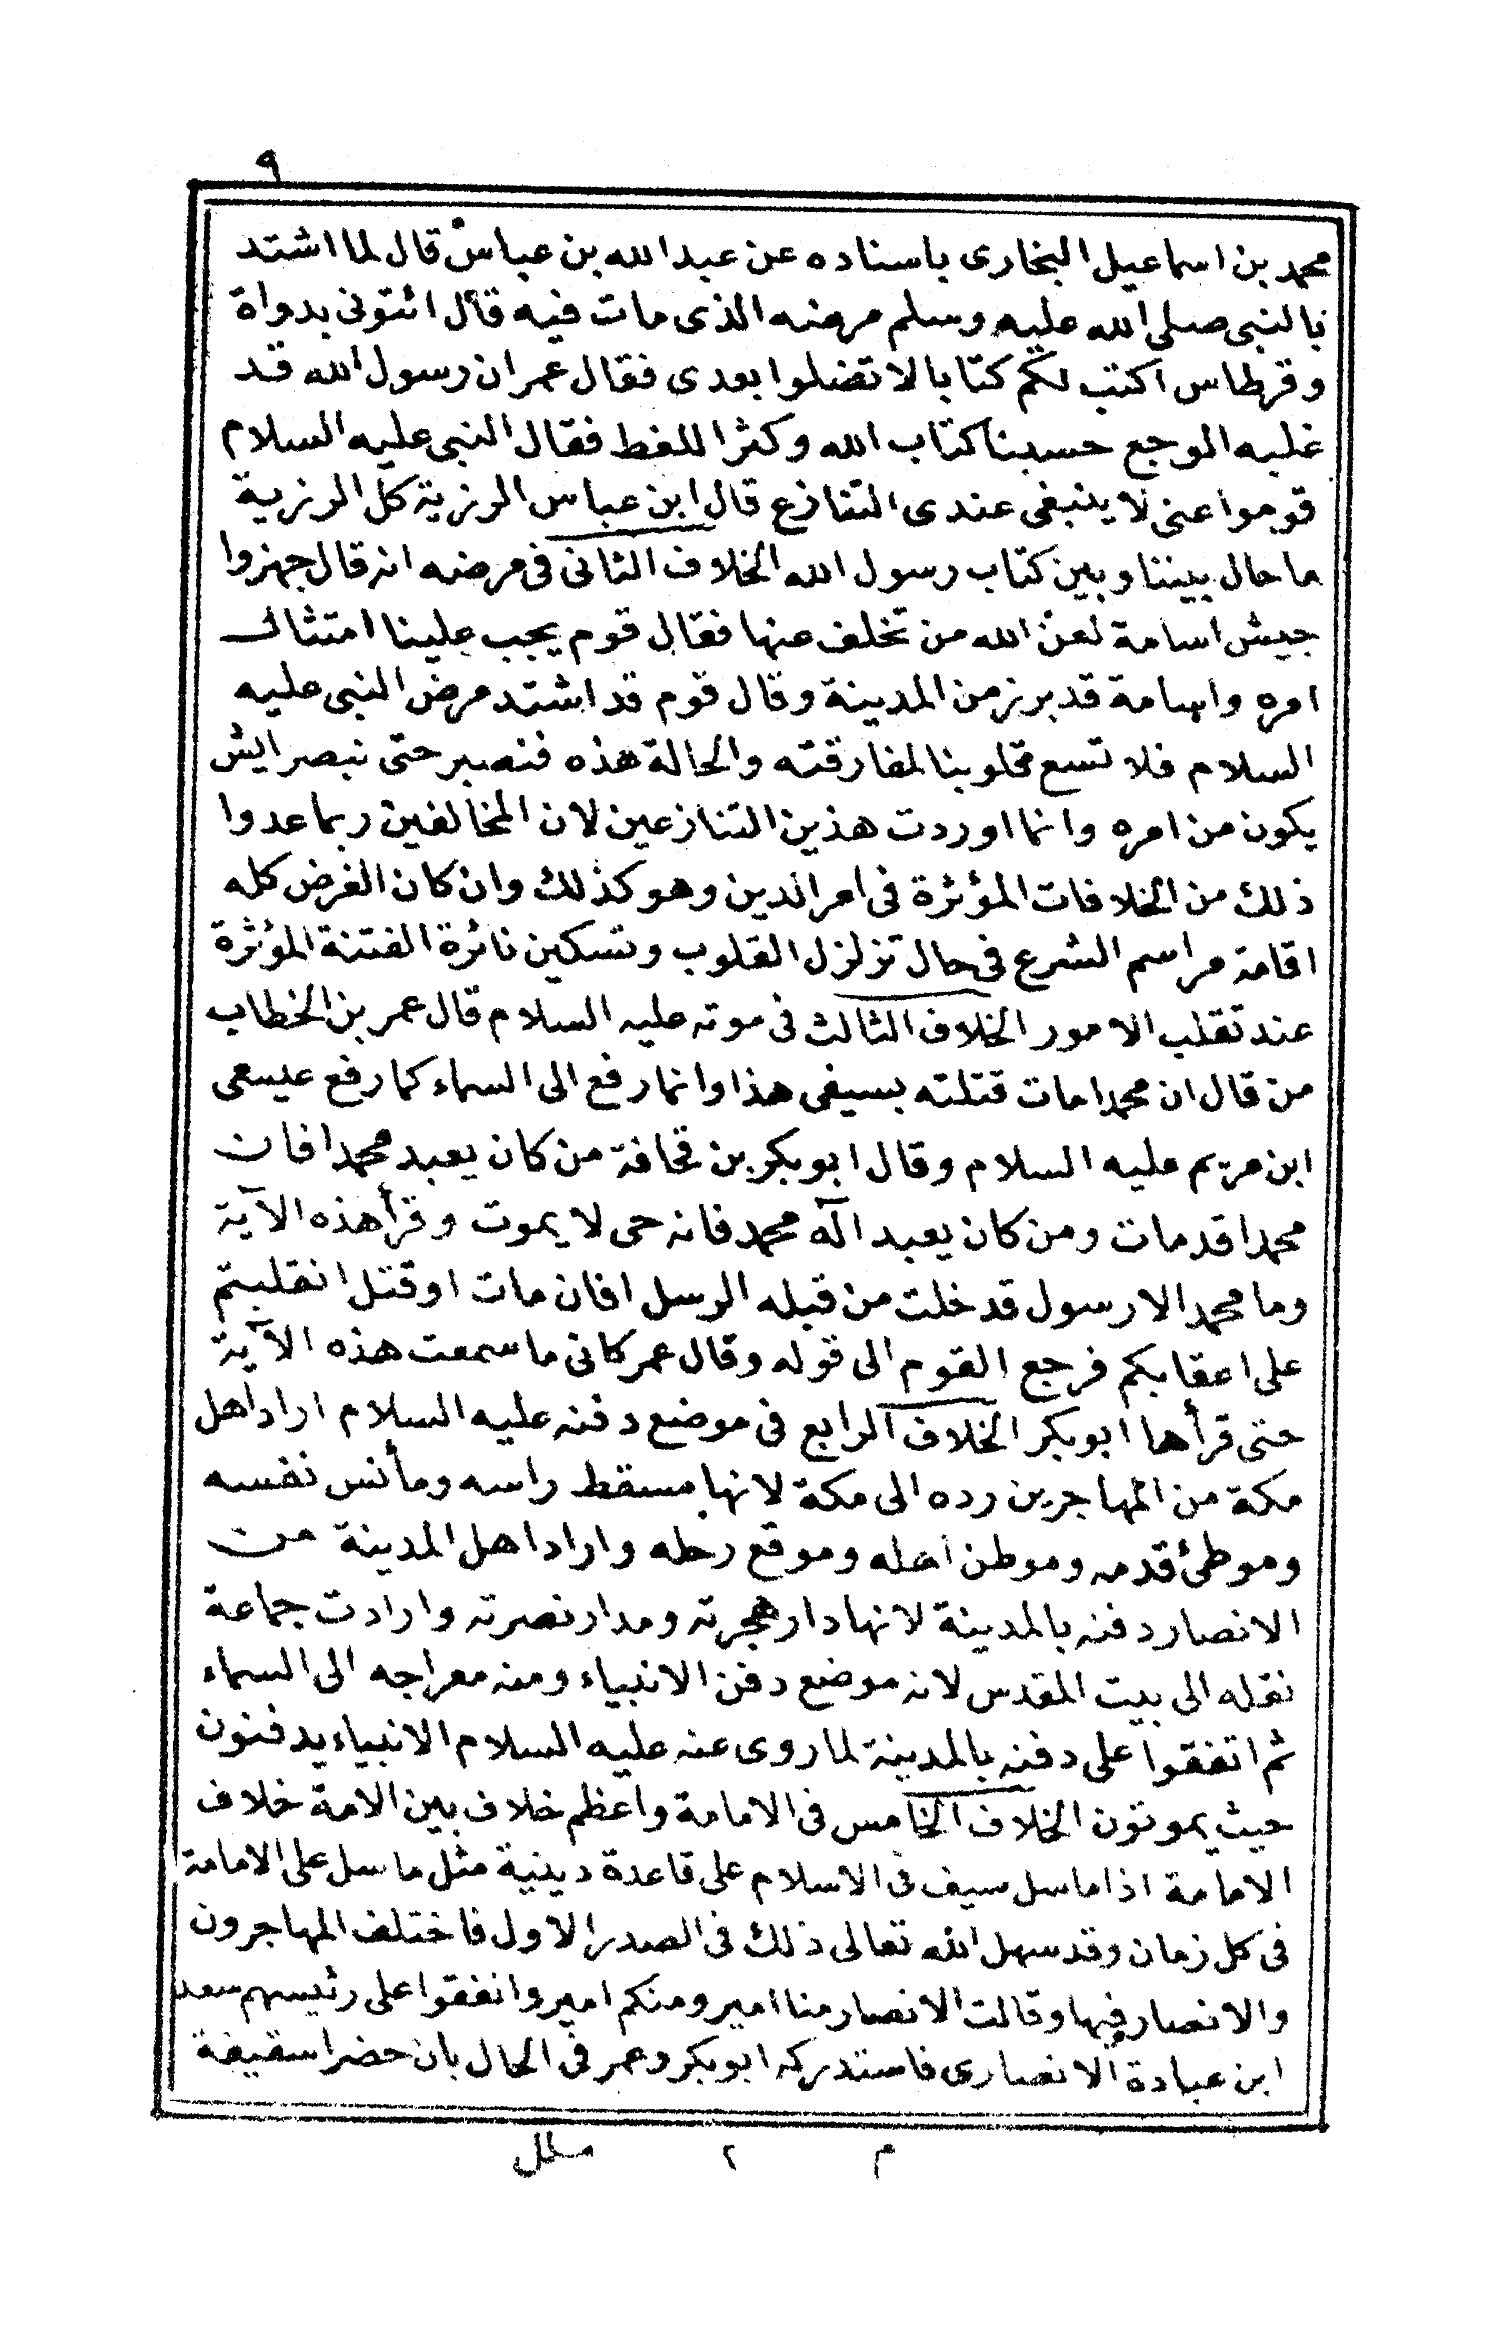 ٩
محمد بن اسماعيل البخارى باسناده عن عبد الله بن عباس قال لما اشتد
بالنبى صلى الله عليه وسلم مرضه الذى مات فيه قال ائتونى بدواة
وقرطاس اكتب لكم كتابا لا تضلوا بعدى فقال عمر ان رسول الله قد
غلبه الوجع حسبنا كتاب الله وكثر اللغط فقال النبى عليه السلام
قوموا عنى لا ينبغى عندى التنازع قال ابن عباس الرزية كل الرزية
ما حال بيننا وبين كتاب رسول الله الخلاف الثانى فى مرضه انه قال جهزوا
جيش اسامة لعن الله من تخلف عنها فقال قوم يجب علينا امتثال
امره واسامة قد برز من المدينة وقال قوم قد اشتد مرض النبى عليه
السلام فلا تسع قلوبنا لمفارقته والحالة هذه فنصبر حتى نبصر ايش
يكون من امره وانما اوردت هذين التنازعين لان المخالفين ربما عدوا
ذلك من الخلافات المؤثرة فى امر الدين وهو كذلك وان كان الغرض كله
اقامة مراسم الشرع فى حال تزلزل القلوب وتسكين نائرة الفتنة المؤثرة
عند تقلب الامور الخلاف الثالث فى موته عليه السلام قال عمر بن الخطاب
من قال ان محمدا مات قتلته بسيفى هذا وانما رفع الى السماء كما رفع عيسى
ابن مريم عليه السلام وقال ابو بكر بن قحافة من كان يعبد محمدا فان
محمدا قد مات ومن كان يعبد اله محمد فانه حى لا يموت وقرأ هذه الآية
وما محمد الا رسول قد خلت من قبله الرسل افان مات او قتل انقلبتم
على اعقابكم فرجع القوم الى قوله وقال عمر كانى ما سمعت هذه الآية
حتى قرأها ابو بكر الخلاف الرابع فى موضع دفنه عليه السلام اراد اهل
مكة من المهاجرين رده الى مكة لانها مسقط راسه ومأنس نفسه
وموطئ قدمه وموطن اهله وموقع رحله واراد اهل المدينة من
الانصار دفنه بالمدينة لانها دار هجرته ومدار نصرته وارادت جماعة
نقله الى بيت المقدس لانه موضع دفن الانبياء ومنه معراجه الى السماء
ثم اتفقوا على دفنه بالمدينة لما روى عنه عليه السلام الانبياء يدفنون
حيث يموتون الخلاف الخامس فى الامامة واعظم خلاف بين الامة خلاف
الامامة اذ ما سل سيف فى الاسلام على قاعدة دينية مثل ما سل على الامامة
فى كل زمان وقد سهل الله تعالى ذلك فى الصدر الاول فاختلف المهاجرون
والانصار فيها وقالت الانصار منا امير ومنكم امير واتفقوا على رئيسهم سعد
ابن عبادة الانصارى فاستدركه ابو بكر وعمر فى الحال بان حضرا سقيفة
م ٢ ملل